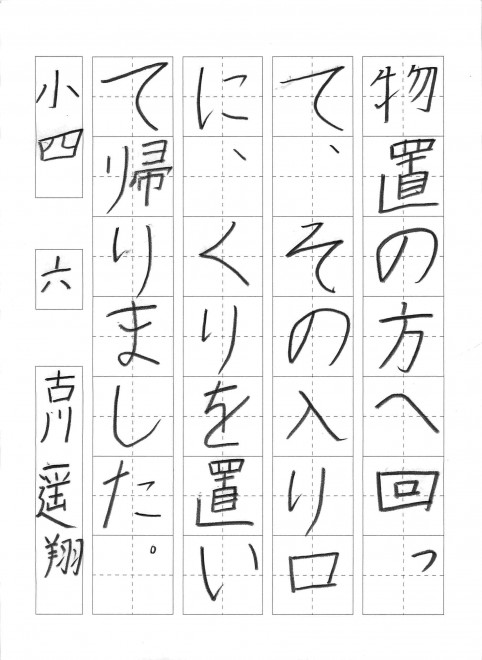 物置の方へ回っ
て、その入り口
に、くりを置い
て帰りました。
小四
六
古川遥翔